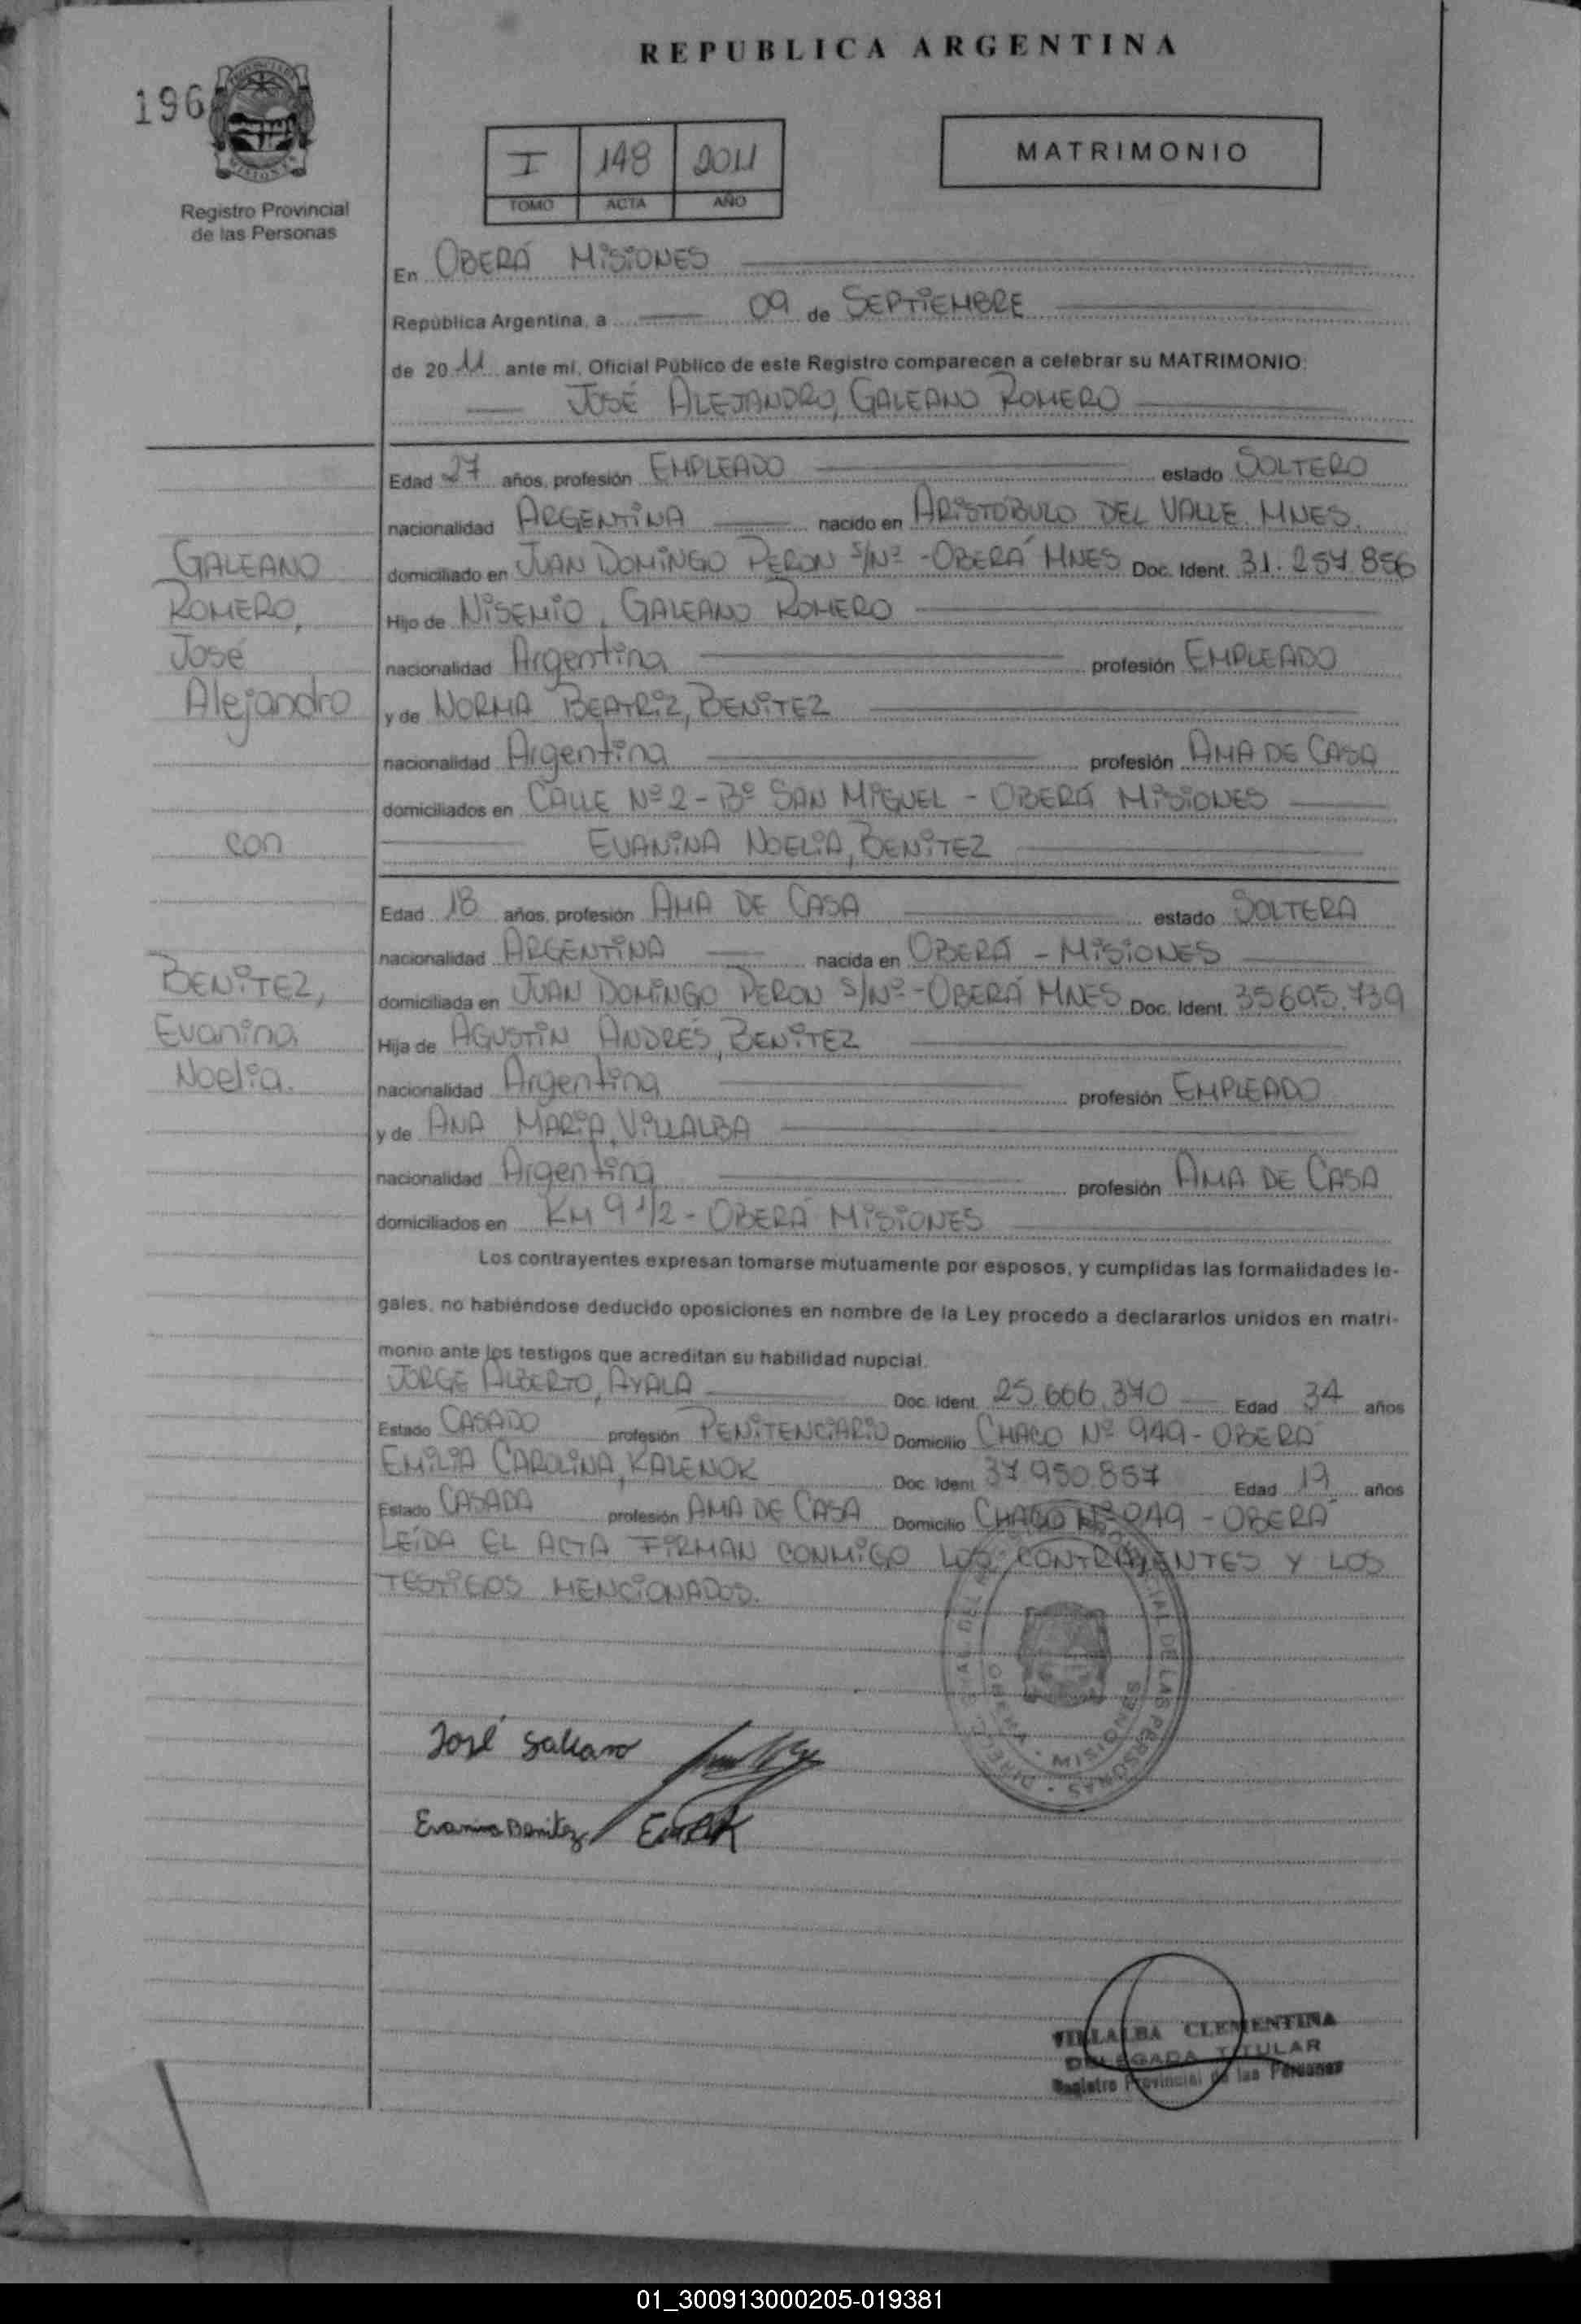 REPUBLICA ARGENTINA
196
Registro Provincial
de las Personas
I 148 2011
TOMO ACTA AÑO
MATRIMONIO
En OBERÁ MISIONES
República Argentina, a 09 de SEPTIEMBRE
de 2011 ante mí, Oficial Público de este Registro comparecen a celebrar su MATRIMONIO:
JOSÉ ALEJANDRO, GALEANO ROMERO
Edad 27 años, profesión EMPLEADO estado SOLTERO
nacionalidad ARGENTINA nacido en ARISTOBULO DEL VALLE MNES.
domiciliado en JUAN DOMINGO PERON S/Nº - OBERÁ MNES Doc. Ident. 31.257.856
Hijo de NISEMIO, GALEANO ROMERO
nacionalidad Argentina profesión EMPLEADO
y de NORMA BEATRIZ, BENITEZ
nacionalidad Argentina profesión AMA DE CASA
domiciliados en CALLE Nº 2 - Bº SAN MIGUEL - OBERÁ MISIONES
EVANINA NOELIA, BENITEZ
GALEANO
ROMERO,
José
Alejandro
con
BENITEZ,
Evanina
Noelia.
Edad 18 años, profesión AMA DE CASA estado SOLTERA
nacionalidad ARGENTINA nacida en OBERÁ - MISIONES
domiciliada en JUAN DOMINGO PERON S/Nº - OBERÁ MNES Doc. Ident. 35695.739
Hija de AGUSTIN ANDRÉS, BENITEZ
nacionalidad Argentina profesión EMPLEADO
y de ANA MARIA, VILLALBA
nacionalidad Argentina profesión AMA DE CASA
domiciliados en KM 9 1/2 - OBERÁ MISIONES
Los contrayentes expresan tomarse mutuamente por esposos, y cumplidas las formalidades le-
gales, no habiéndose deducido oposiciones en nombre de la Ley procedo a declararlos unidos en matri-
monio ante los testigos que acreditan su habilidad nupcial.
JORGE ALBERTO, AYALA Doc. Ident. 25.666.370 Edad 34 años
Estado CASADO profesión PENITENCIARIO Domicilio CHACO Nº 949 - OBERÁ
EMILIA CAROLINA, KALENOK Doc. Ident. 37.950.857 Edad 19 años
Estado CASADA profesión AMA DE CASA Domicilio CHACO Nº 949 - OBERÁ
LEÍDA EL ACTA FIRMAN CONMIGO LOS CONTRAYENTES Y LOS
TESTIGOS MENCIONADOS.
DE LAS PERSONAS
MISIONES
José Galeano
Evanina Benitez
VILLALBA CLEMENTINA
DELEGADA TITULAR
Registro Provincial de las Personas
01_300913000205-019381